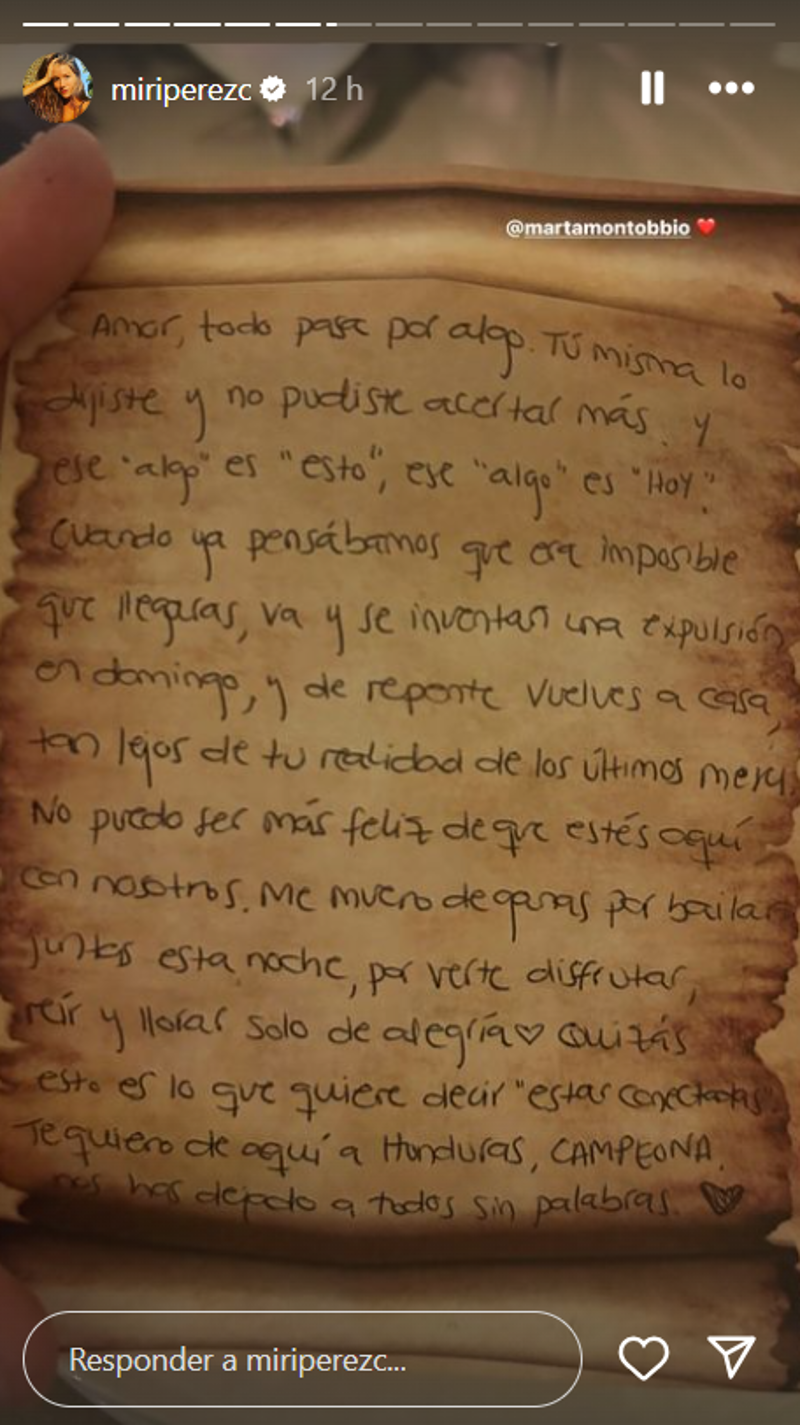 miriperezc 12 h
@martamontobbio ❤️
Amor, todo pasa por algo. Tú misma lo
dijiste y no pudiste acertar más. y
ese "algo" es "esto", ese "algo" es "Hoy".
Cuando ya pensábamos que era imposible
que llegaras, va y se inventan una expulsión
en domingo, y de repente vuelves a casa,
tan lejos de tu realidad de los últimos meses.
No puedo ser más feliz de que estés aquí
con nosotros. Me muero de ganas por bailar
juntas esta noche, por verte disfrutar,
reír y llorar solo de alegría♡ Quizás
esto es lo que quiere decir "estar conectadas".
Te quiero de aquí a Honduras, CAMPEONA.
nos has dejado a todos sin palabras. ♡
Responder a miriperezc...